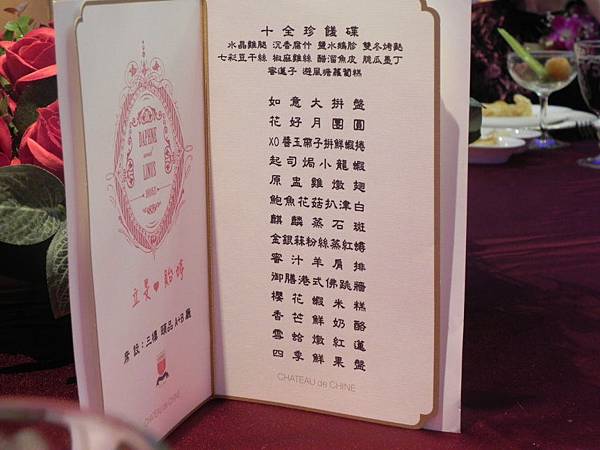 DAPHNE
and
LINUS
立昱❤貽婷
席設:三樓 頤品 A+B廳
CHATEAU de CHINE
十全珍饈碟
水晶雞腿 沉香腐竹 鹽水鴨胗 雙冬烤麩
七彩豆干絲 椒麻雞絲 醋溜魚皮 脆瓜墨丁
蜜蓮子 避風塘蘿蔔糕
如意大拼盤
花好月團圓
XO醬玉帶子拼鮮蝦捲
起司焗小龍蝦
原盅雞燉翅
鮑魚花菇扒津白
麒麟蒸石斑
金銀蒜粉絲蒸紅蟳
蜜汁羊肩排
御膳港式佛跳牆
櫻花蝦米糕
香芒鮮奶酪
雪蛤燉紅蓮
四季鮮果盤
CHATEAU de CHINE